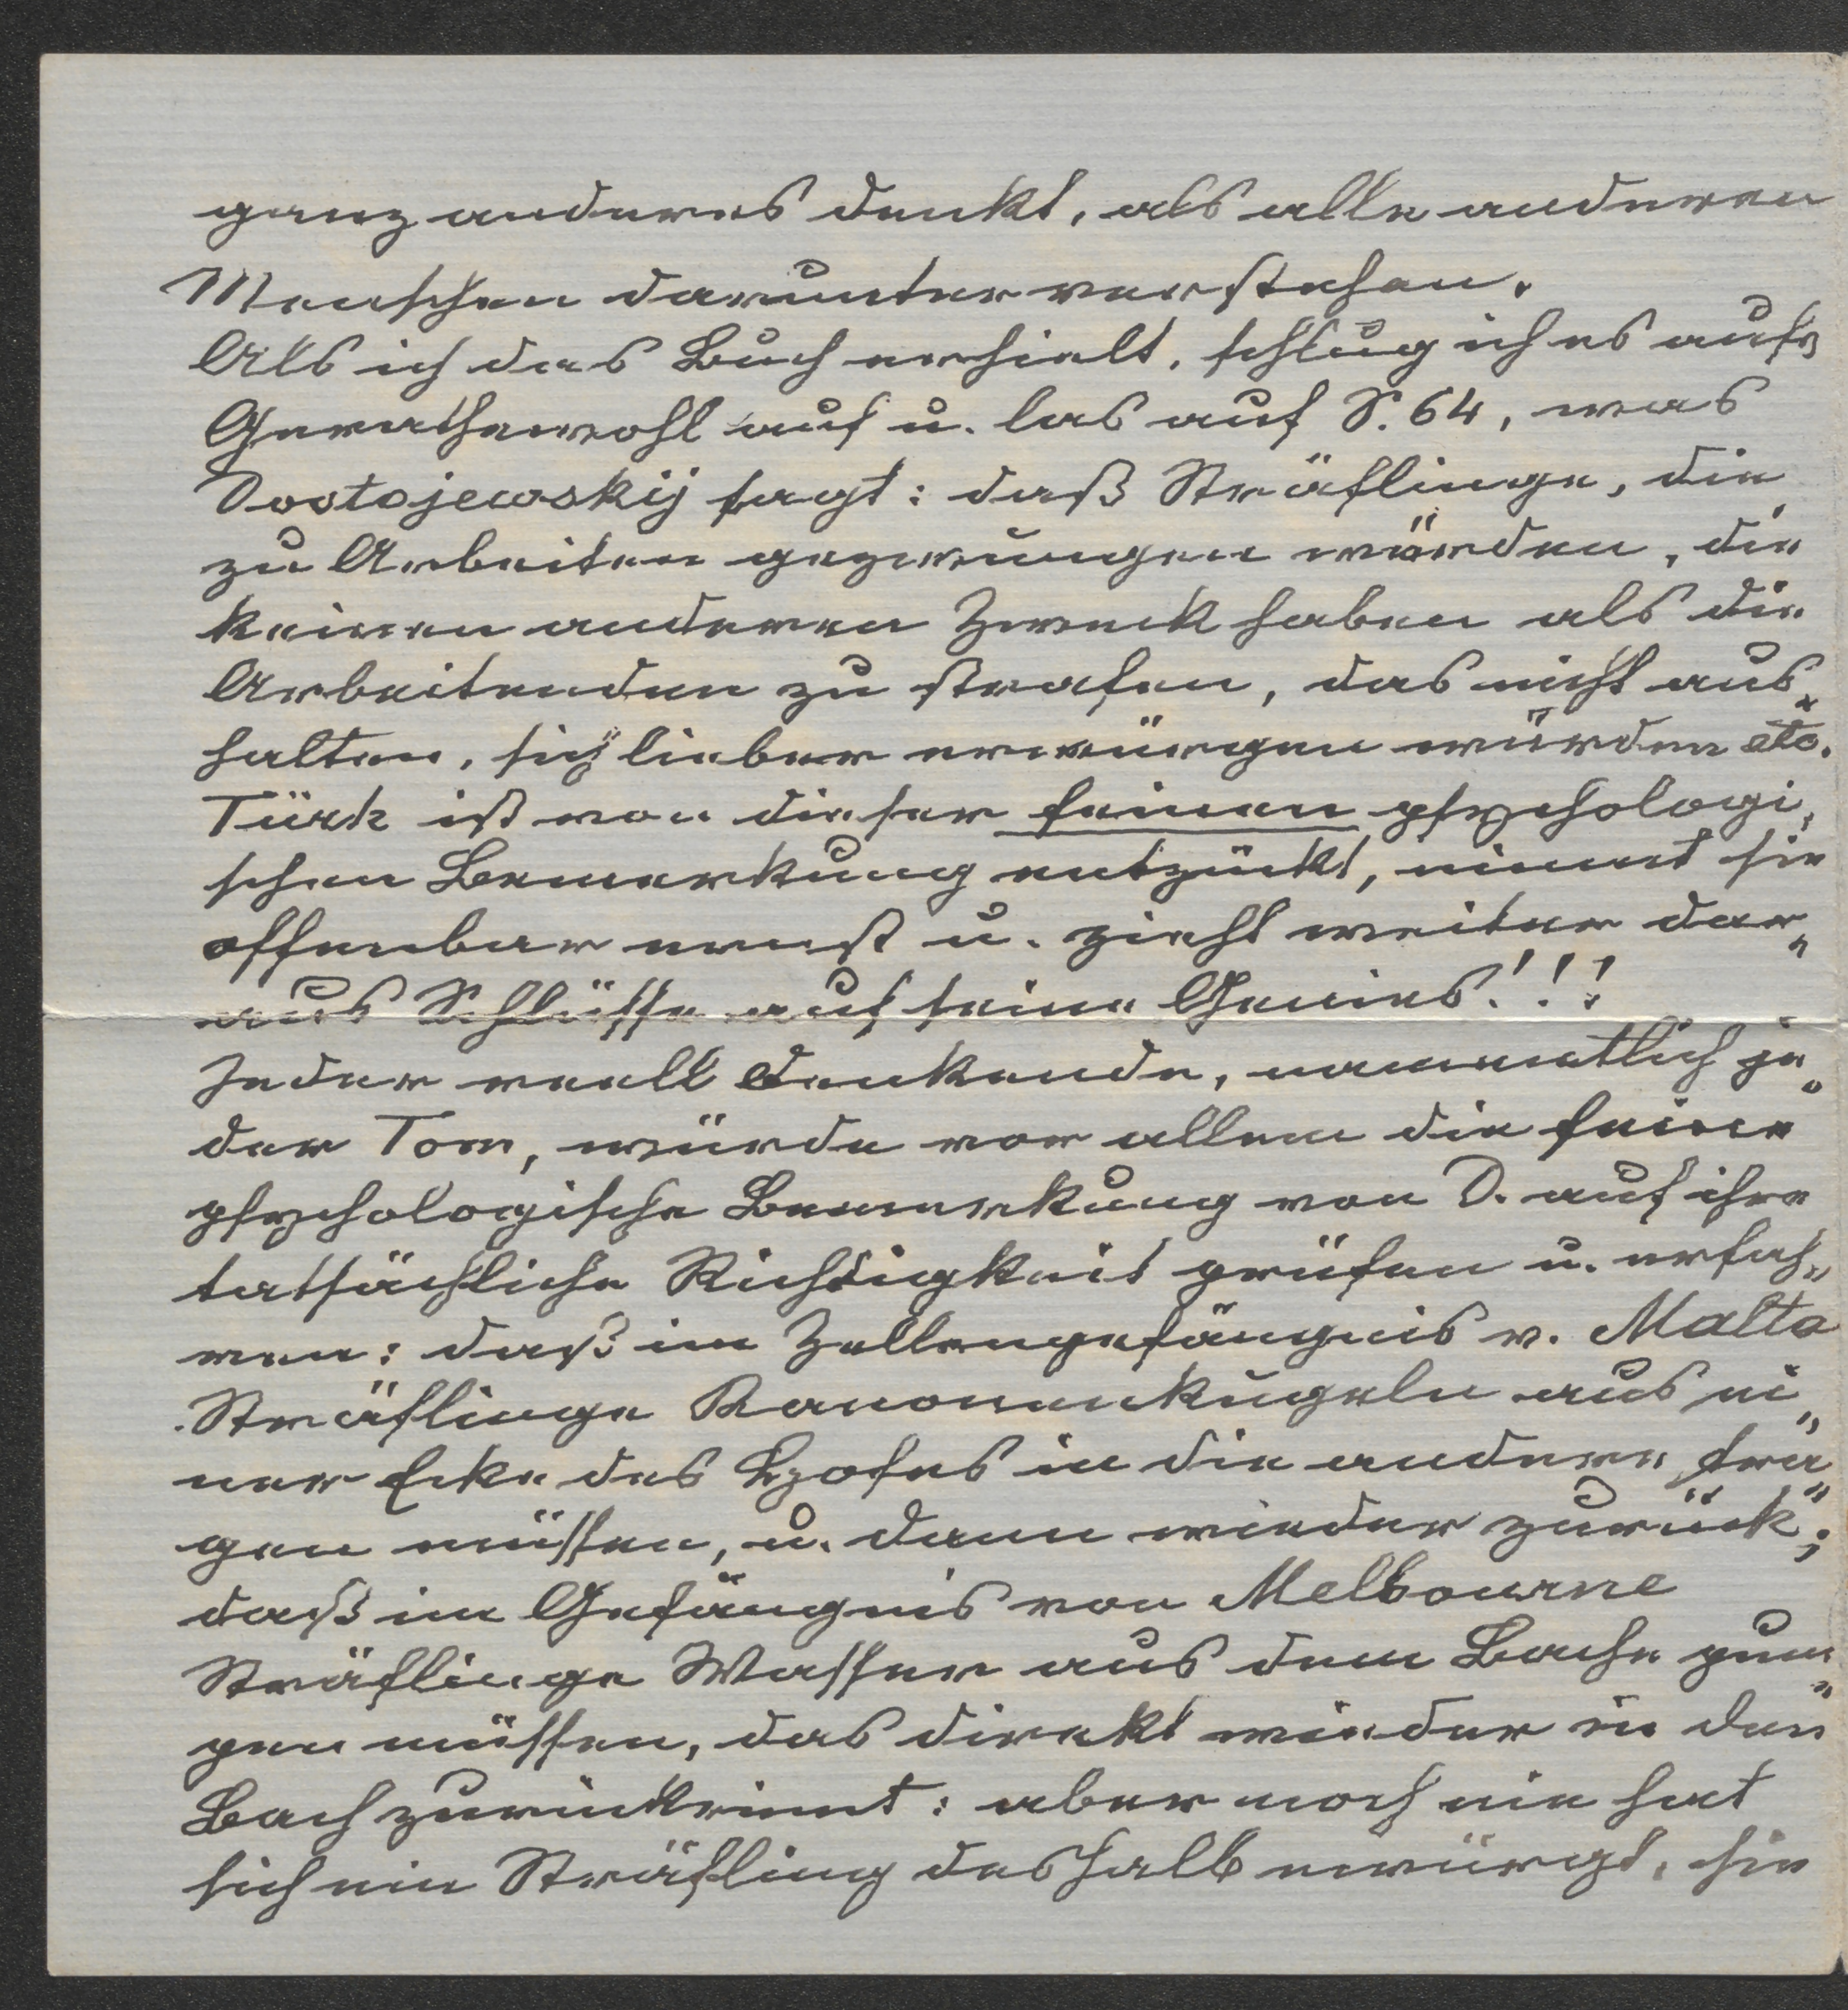 ganz anderes denkt, als alle anderen
Menschen darunter verstehen.
Als ich das Buch erhielt, schlug ich es aufs
Gerathewohl auf u. las auf S. 64, was
Dostojewskij sagt: daß Sträflinge, die
zu Arbeiten gezwungen würden, die
keinen anderen Zweck haben als die
Arbeitenden zu strafen, das nicht aus„
halten, sich lieber erwürgen würden etc.
Türk ist von dieser feinen psychologi„
schen Bemerkung entzückt, nimmt sie
offenbar ernst u. zieht weiter dar„
aus Schlüsse auf seine Genies!!!
Jeder reell denkende, namentlich je„
der Tom, würde vor allem die feine
psychologische Bemerkung von D. auf ihre
tatsächliche Richtigkeit prüfen u. erfah„
ren: daß im Zellengefängnis v. Malta
Sträflinge Kanonenkugeln aus ei„
ner Ecke des Hofes in die andere tra„
gen müssen, u. dann wieder zurück;
daß im Gefängnis von Melbourne
Sträflinge Wasser aus dem Bache pum„
pen müssen, das direkt wieder in den
Bach zurückrinnt: aber noch nie hat
sich ein Sträfling deshalb erwürgt, sie